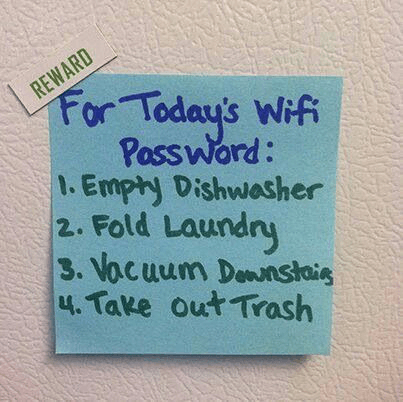 REWARD
For Today's Wifi
Password:
1. Empty Dishwasher
2. Fold Laundry
3. Vacuum Downstairs
4. Take Out Trash